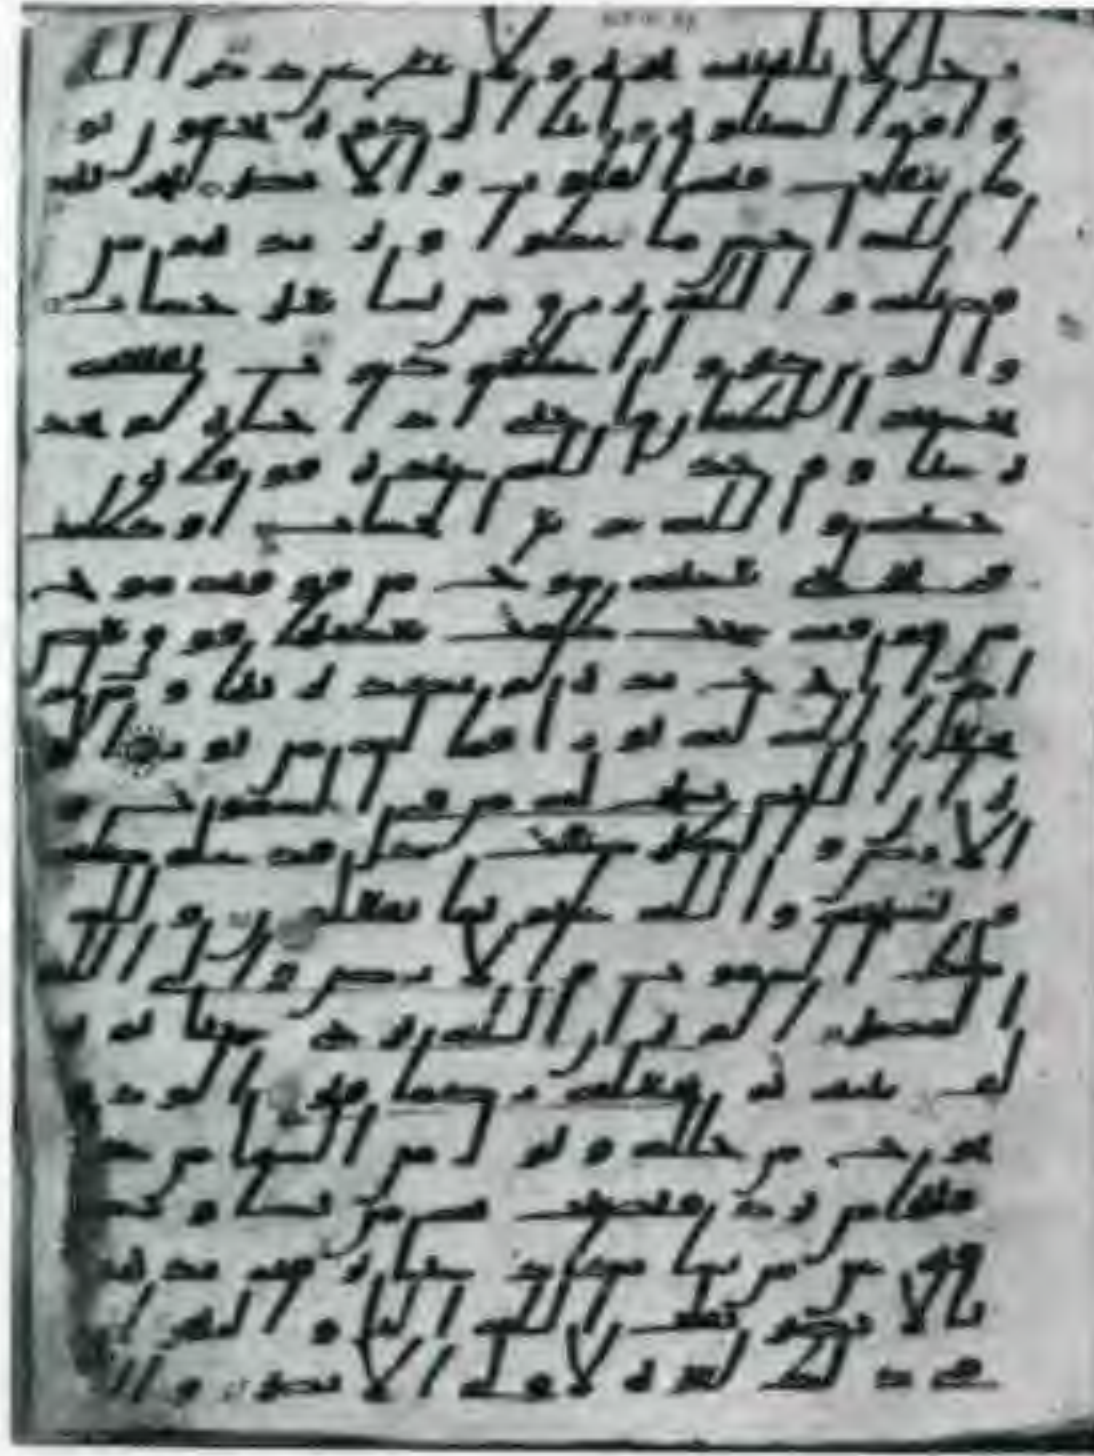 رجل لا تلهيهم تجرة ولا بيع عن ذكر الله
واقم الصلوة وايتا الزكوة يخفون يو
ما تتقلب فيه القلوب والابصر ليجزيهم
الله احسن ما عملوا ويزيدهم من
فضله والله يرزق من يشا بغير حساب
والذين كفروا اعملهم كسراب بقيعة
يحسبه الظمان ما حتى اذا جاه لم يجد
ه شيا ووجد الله عنده فوفيه
حسبه والله سريع الحساب او كظلمت
في بحر لجي يغشيه موج من فوقه موج
من فوقه سحب ظلمت بعضها فوق بعض
اذا اخرج يده لم يكد يريها ومن لم
يجعل الله له نورا فما له من نور الم
تر ان الله يسبح له من في السموت و
الارض والطير صفت كل قد علم صلاته
وتسبيحه والله عليم بما يفعلون ولله
ملك السموت والارض والى الله
المصير الم تر ان الله يزجي سحبا ثم يو
لف بينه ثم يجعله ركما فترى الودق
يخرج من خلله وينزل من السما من جبال
فيها من برد فيصيب به من يشا ويصر
فه عن من يشا يكاد سنا برقه يذهب
بالابصر يقلب الله اليل والنهار ان
في ذلك لعبرة لاولى الابصر والله